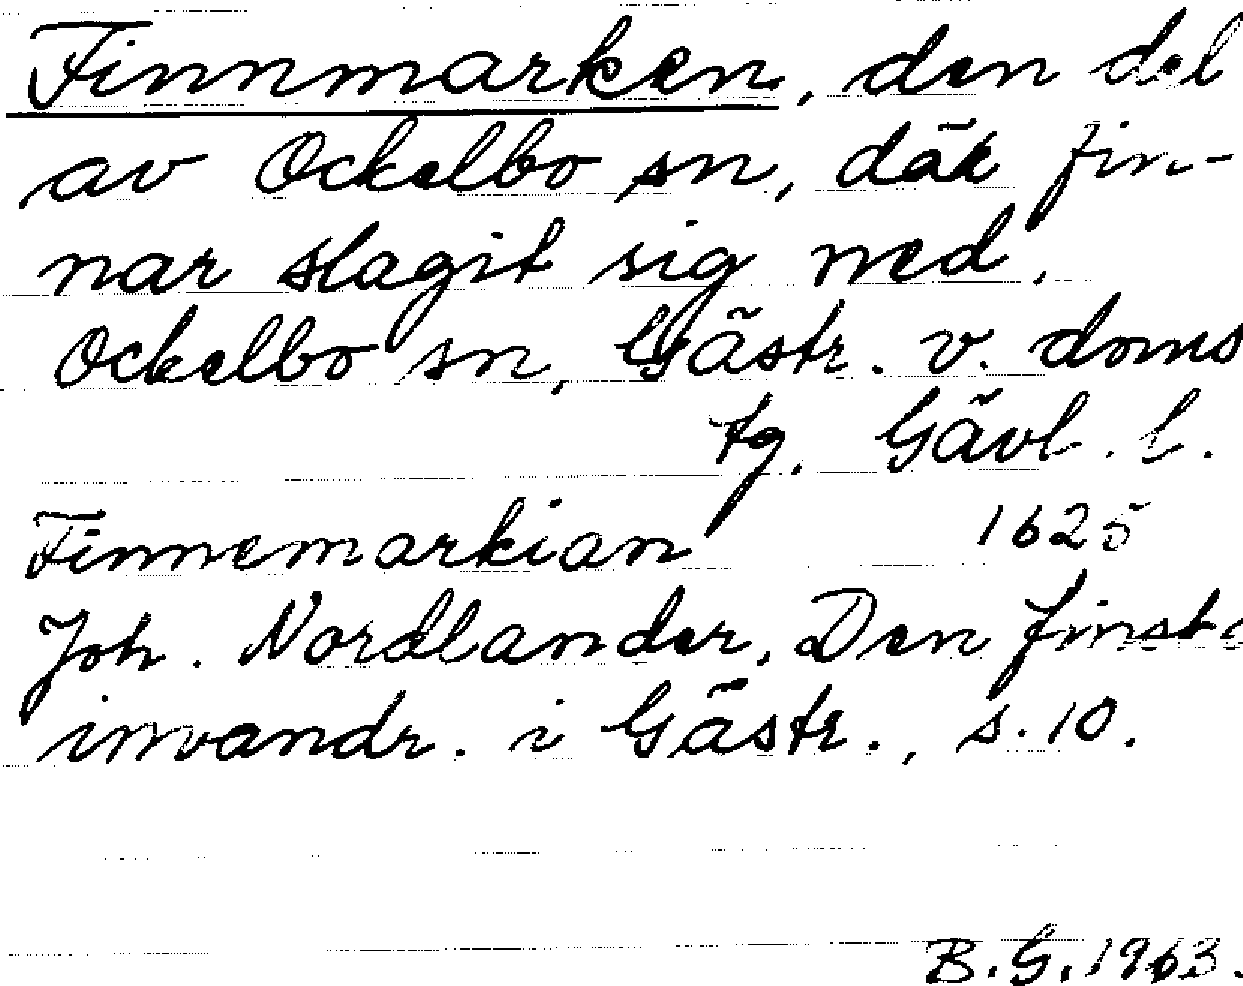 Finnmarken, den del
av Ockelbo sn, där fin-
nar slagit sig ned.
Ockelbo sn, Gästr. v. doms
tg. Gävl. l.
Finnemarkian 1625
Joh. Nordlander, Den finska
invandr. i Gästr., s. 10.
B.G. 1963.